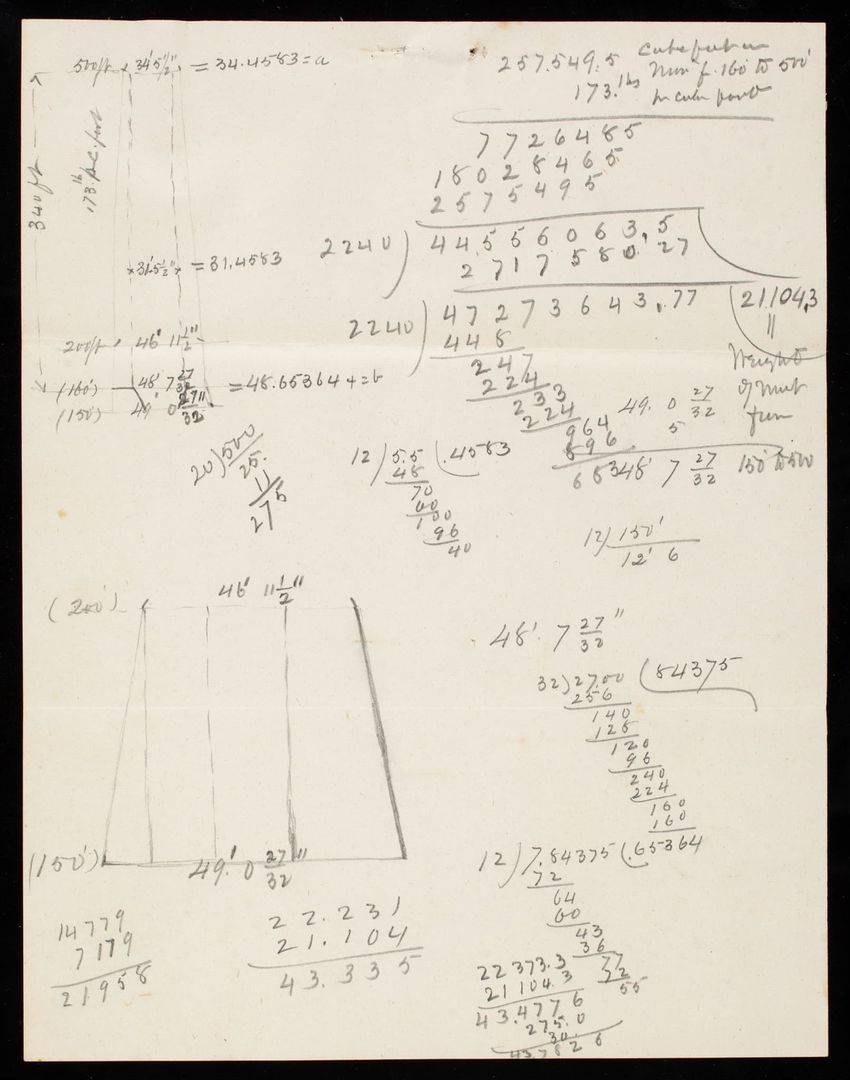 500ft 34' 5 1/2" = 34.4583 = a
340 ft
173 lb p.c. foot
31' 5 1/2" = 31.4583
200ft 46' 11 1/2"
(160') 48' 7 27/32 = 48.65364 + = b
(150') 49' 0 27/32"
257.549.5 cube feet in
173. lbs Mon f. 160 to 500'
pr cube foot
7726485
18028465
2575495
2240) 44556063.5
2717580.27
2240) 47273643.77 (21104.3
448
247
224
233
224
964
896
683
"
Weight
of Mont
from
150 to 500
49. 0 27/32
5
48' 7 27/32
20)500
25.
11
275
12) 5.5 (.4583
48
70
60
100
96
40
12) 150'
12' 6
(200') 46' 11 1/2"
(150') 49.' 0 27/32"
48'. 7 27/32"
32) 27.00 (84375
256
140
128
120
96
240
224
160
160
12) 7.84375 (.65364
72
64
60
43
36
77
72
55
14779
7179
21958
22.231
21.104
43.335
22373.3
21104.3
43.4776
275.0
30.
43.782 6